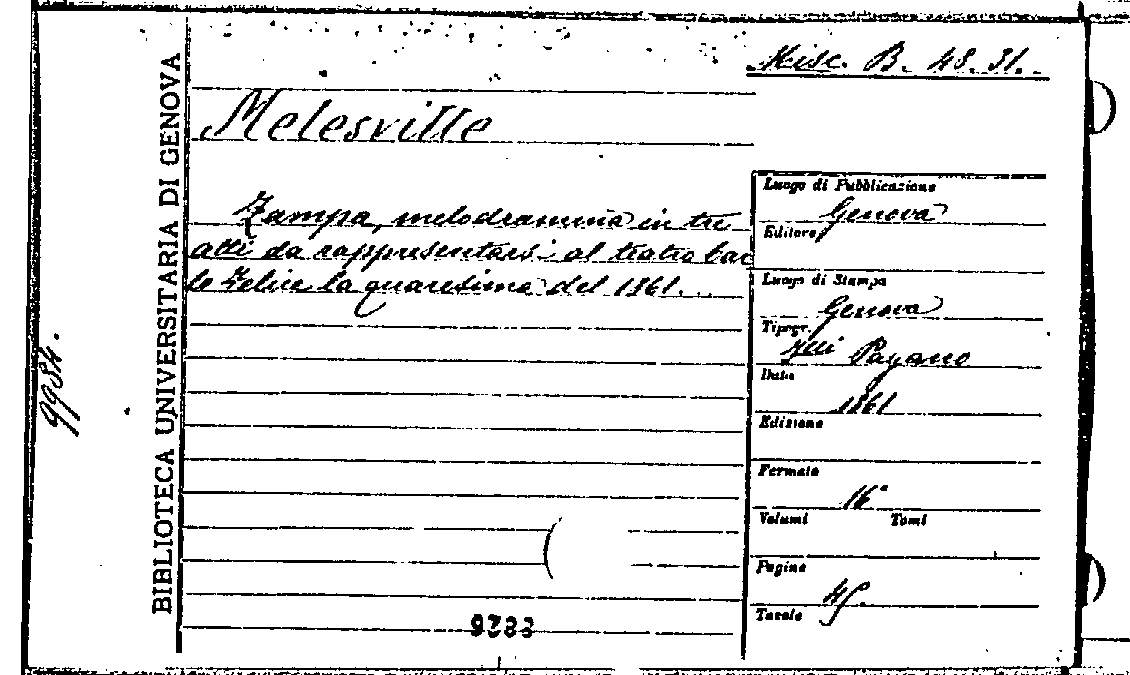 Misc. B. 48.31.
BIBLIOTECA UNIVERSITARIA DI GENOVA
9984.
Melesville
Zampa, melodramma in tre
atti da rappresentarsi al teatro Car
lo Felice la quaresima del 1861.
Luogo di Pubblicazione
Genova
Editore
Luogo di Stampa
Genova
Tipogr.
Flli Pagano
Data
1861
Edizione
Formato
16°
Volumi Tomi
Pagine
45.
Tavole